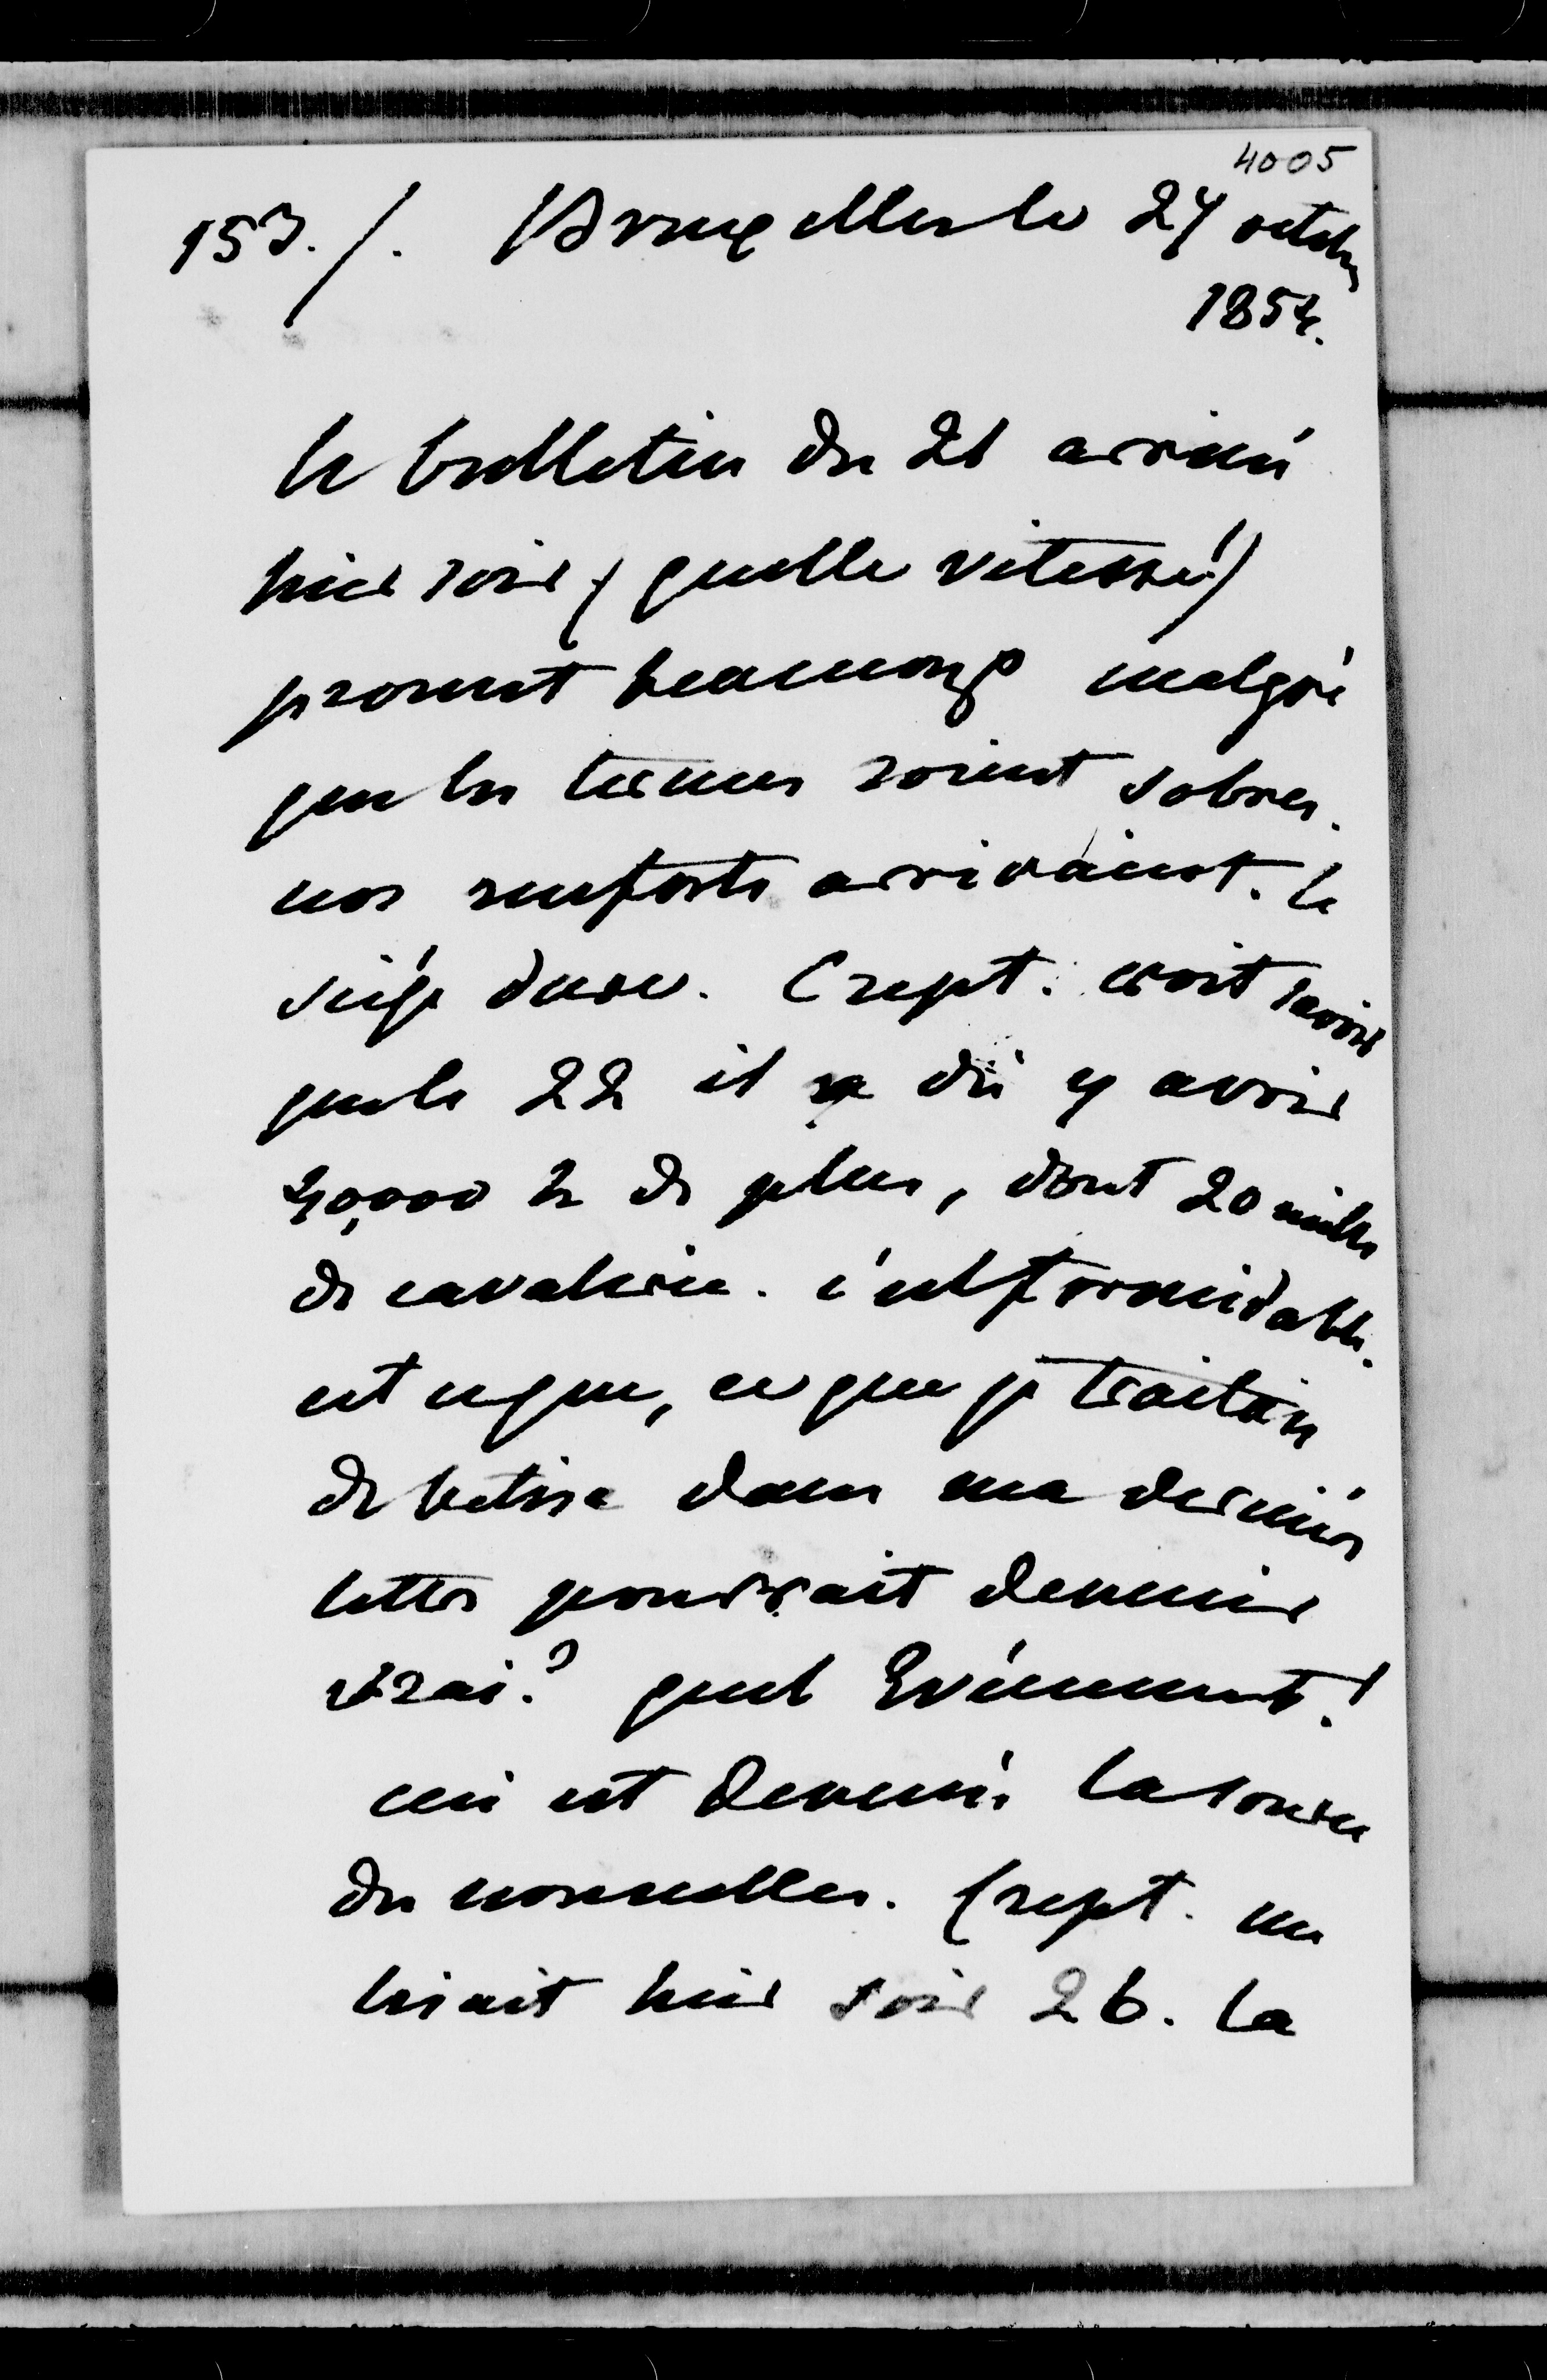 4005
153./. Bruxelles le 27 octobre
1854.
le bulletin du 21 arrivé
hier soir (quelle vitesse!)
promet beaucoup malgré
que les termes soient sobres.
nos renforts arrivaient. le
siège dure. Crept. croit savoir
que le 22 il a dû y avoir
40,000 h de plus, dont 20 mille
de cavalerie. c'est formidable.
est ce que, ce que je traitais
de betise dans ma dernière
lettre pourrait devenir
vrai? quel Evénement!
ceci est devenu la source
des nouvelles. Crept. me
lisait hier soir 26. la